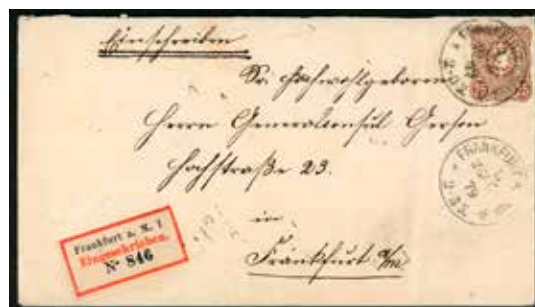 Einschreiben
Sr. Hochwohlgeboren
Herrn Generalconsul Gerson
Hochstraße 23.
in
Frankfurt a/m
Frankfurt a. M. 1
Eingeschrieben.
Nº 846
FRANKFURT
79